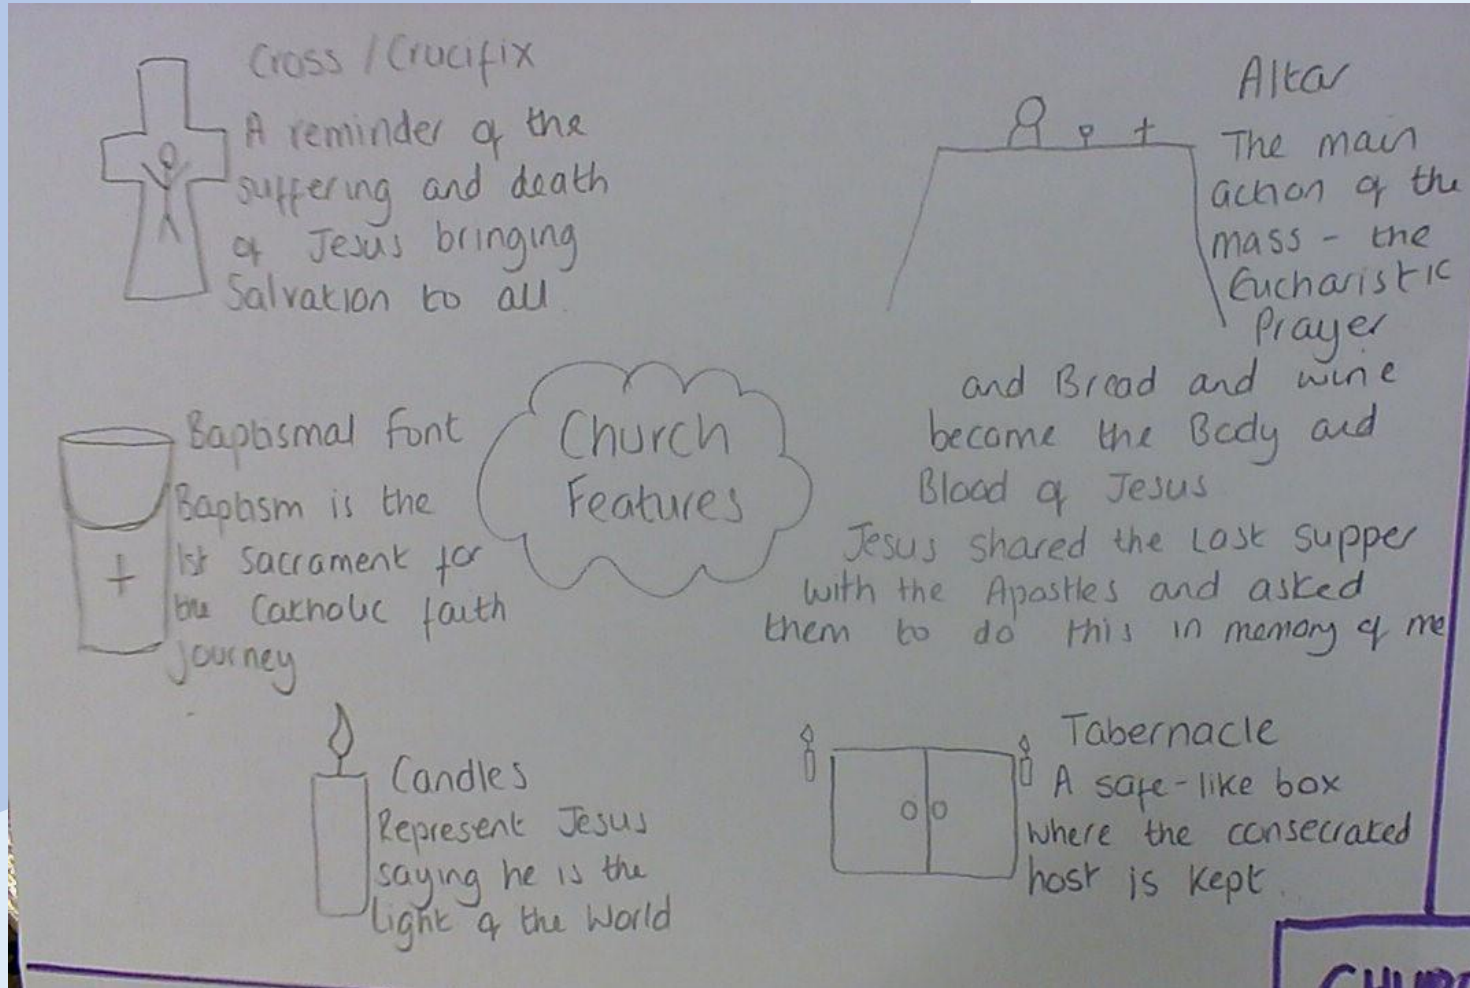 Cross / Crucifix
A reminder of the
suffering and death
of Jesus bringing
Salvation to all
Altar
The main
action of the
mass - the
Eucharistic
Prayer
and Bread and wine
become the Body and
Blood of Jesus
Jesus shared the Last Supper
with the Apostles and asked
them to do this in memory of me
Church
Features
Baptismal Font
Baptism is the
1st sacrament for
the Catholic faith
journey
Candles
Represent Jesus
saying he is the
Light of the World
Tabernacle
A safe-like box
where the consecrated
host is kept.